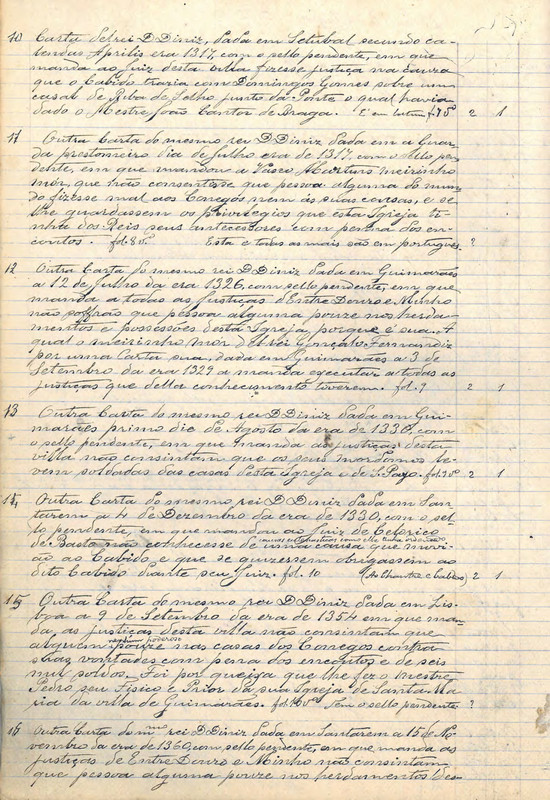 10 Carta delrei D Diniz, dada em Setubal secundo ca-
lendas Aprilis era 1317, com o sello pendente, em que
manda ao Juiz desta villa fizesse justiça na causa
que o Cabido trazia com Domingos Gomes sobre um
casal de Riba de Selho junto da Ponte o qual havia
dado o Mestre João Cantor de Braga. E em latim f. 7 vº 2 1
11 Outra Carta do mesmo rei D Diniz dada em a Guar-
da prestomeiro dia de julho era de 1317, com o sello pen-
dente, em que mandou a Vasco Martins meirinho
mór, que não consentisse que pessoa alguma do mun-
do fizesse mal aos Conegos nem ás suas cousas, e se
lhe guardassem os privilegios que esta Igreja ti-
nha dos Reis seus antecessores com penna dos en-
coutos. fol. 8 vº. Esta e todas as mais são em portuguez. ?
12 Outra Carta do mesmo rei D Diniz dada em Guimarães
a 12 de julho da era 1326, com sello pendente, em que
manda a todas as justiças d'Entre Douro e Minho
não soffrão que pessoa alguma pouze nos herda-
mentos e possessões desta Igreja, porque é sua. A
qual o meirinho mór d'El rei Gonçalo Fernandiz
por uma Carta sua, dada em Guimarães a 3 de
Setembro da era 1329 a manda executar a todas as
justiças que della conhecimento tiverem. fol. 9 2 1
13 Outra Carta do mesmo rei D Diniz dada em Gui-
marães primo die de Agosto da era de 1330, com
o sello pendente, em que manda as justiças desta
villa não consintam que os seus mordomos le-
vem soldadas das casas desta Igreja e de S. Payo. fol. 9 vº 2 1
14 Outra Carta do mesmo rei D Diniz dada em San-
tarem a 4 de Dezembro da era de 1330, com o sel-
lo pendente, em que mandou ao Juiz de Celorico
de Basto não conhecesse de uma causa que movi-
ão ao Cabido e que se quizessem obrigassem ao
dito Cabido diante seu Juiz. fol. 10 (Ao Chantre e Cabido) 2 1
15 Outra Carta do mesmo rei D Diniz dada em Lis-
boa a 9 de Setembro da era de 1354 em que man-
da, as justiças desta villa não consintam que
nenhum poderoso
alguem pouze nas casas dos Conegos contra
suas vontades com penna dos encoutos e de seis
mil soldos. Foi por queixa que lhe fez o mestre
Pedro seu Fisico e Prior da sua Igreja de Santa Ma-
ria da villa de Guimarães. fol. 10 vº Sem o sello pendente ?
16 Outra Carta do m.mo rei D Diniz dada em Santarem a 15 de No-
vembro da era de 1360, com sello pendente, em que manda as
justiças de Entre Douro e Minho não consintam
que pessoa alguma pouze nos herdamentos des-